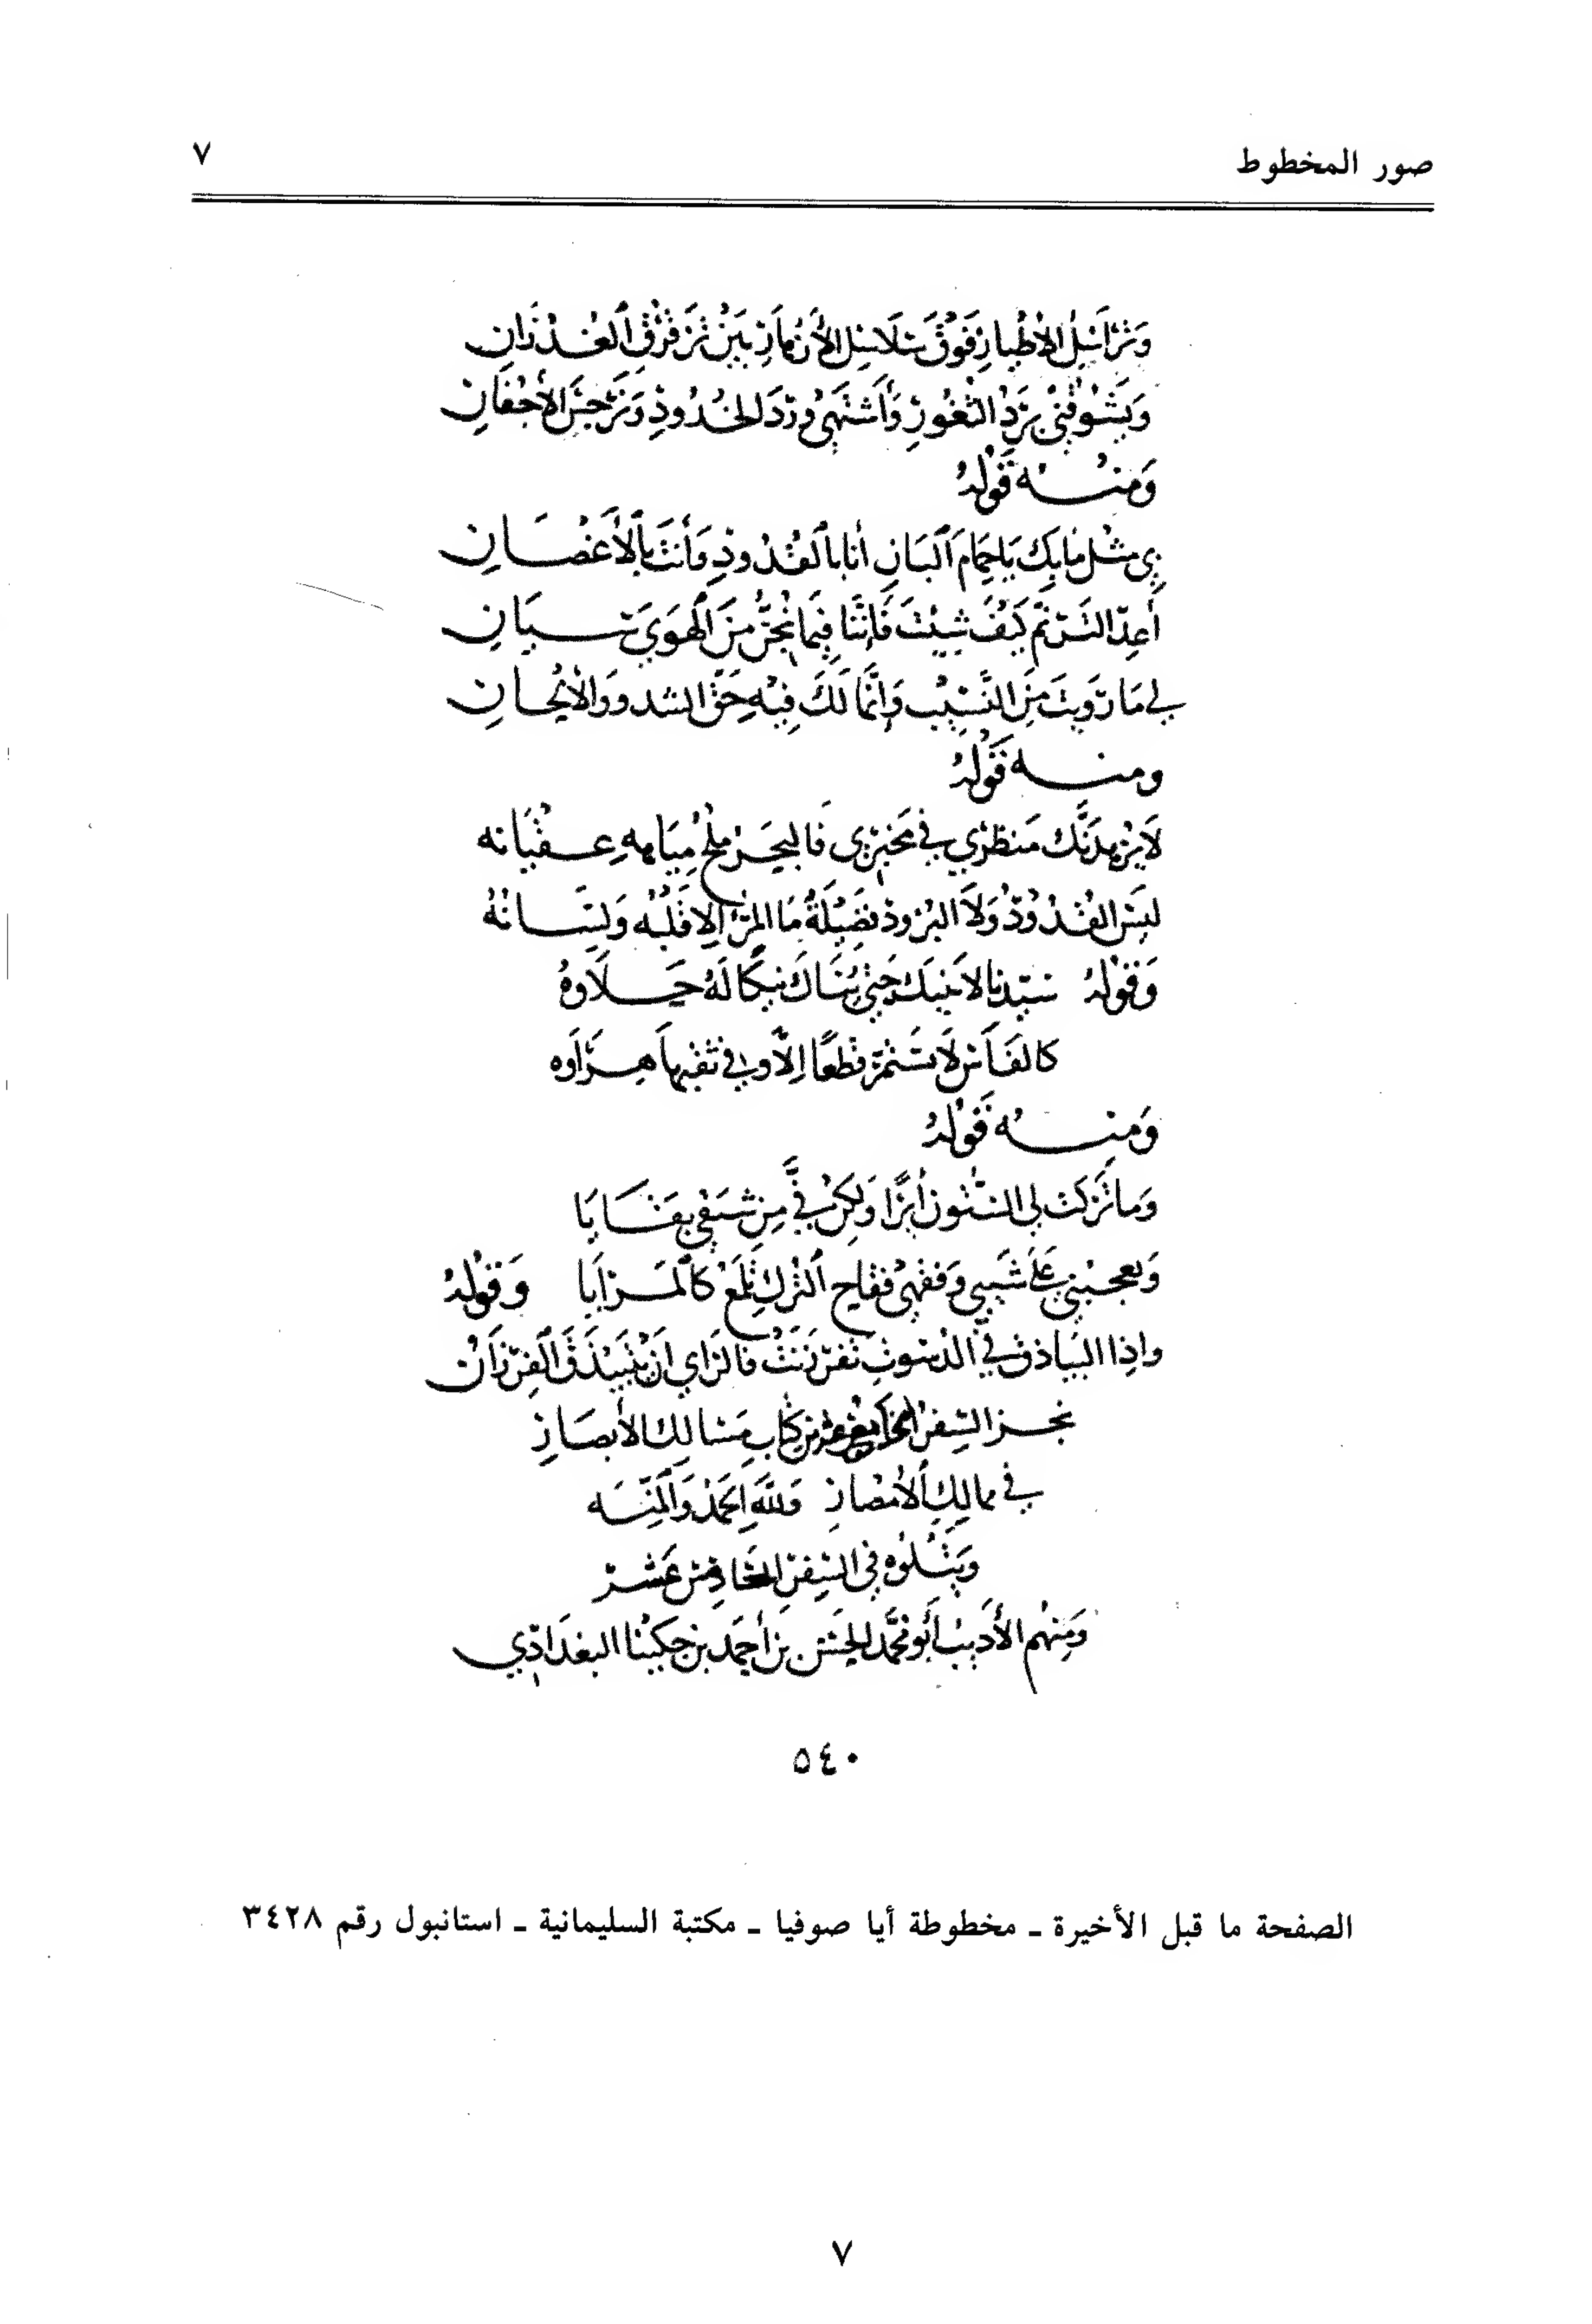 صور المخطوط ٧
وَتَرَاسُلِ الأَطْيَارِ فَوْقَ سَلَاسِلِ الأَنْهَارِ بَيْنَ تَرَقْرُقِ الْغُدْرَانِ
وَيَشُوقُنِي بَرَدُ الثُّغُورِ وَأَشْتَهِي وَرْدَ الْخُدُودِ وَنَرْجِسَ الأَجْفَانِ
وَمِنْهُ قَوْلُهُ
بِي مِثْلُ مَا بِكَ يَا حَمَامَ الْبَانِ أَنَا بِالْقُدُودِ وَأَنْتَ بِالأَغْصَانِ
أَعِدِ التَّرَنُّمَ كَيْفَ شِئْتَ فَإِنَّنَا فِيمَا نُجِنُّ مِنَ الْهَوَى سِيَّانِ
لِي مَا رَوَيْتَ مِنَ النَّسِيبِ وَإِنَّمَا لَكَ فِيهِ حَقُّ الشدو وَالأَلْحَانِ
ومنه قَوْلُهُ
لَا يُزْهِدَنَّكَ مَنْظَرِي فِي مَخْبَرِي فَالْبَحْرُ مِلْحُ مِيَاهِهِ عِقْيَانه
لَيْسَ الْقُدُودُ وَلَا الْبُرُودُ فَضِيلَةً مَا الْمَرْءُ إِلَّا قَلْبُهُ وَلِسَانُهُ
وَقَوْلُهُ سَيِّدُنَا لَا يَنِيكُ حَتَّى يُنَاكَ نَيْكًا لَهُ حَلَاوَهُ
كَالْفَأْسِ لَا تَسْتَمِرُّ قَطْعًا إِلَّا وَفِي ثُقْبِهَا هِرَاوَه
وَمِنْهُ قَوْلُهُ
وَمَا تَرَكَتْ لِيَ السِّتُّونَ أَيْرًا وَلَكِنْ فِيَّ مِنْ شَبَقِي بَقَايَا
وَيُعْجِبُنِي عَلَى شَيْبِي وَفِقْهِي فِقَاحُ التُّرْكِ تَلْمَعُ كَالْمَرَايَا وَقَوْلُهُ
وَإِذَا الْبَيَاذِقُ فِي الدُّسُوتِ تَفَرْزَنَتْ فَالرَّأْيُ أَنْ يَتَبَيْذَقَ الْفِرْزَانُ
نجز السِّفْرُ من كِتَابِ مَسَالِكِ الأَبْصَارِ
فِي ممالك الأَمْصَارِ وَلِلَّهِ الْحَمْدُ وَالْمِنَّه
وَيَتْلُوهُ فِي السِّفْرِ عَشَرَ
وَمِنْهُمُ الأَدِيبُ أَبُو مُحَمَّدٍ الْحَسَنُ بْنُ أَحْمَدَ بْنِ حَكِّينَا الْبَغْدَادِيُّ
٥٤٠
الصفحة ما قبل الأخيرة ـ مخطوطة أيا صوفيا ـ مكتبة السليمانية ـ استانبول رقم ٣٤٢٨
٧